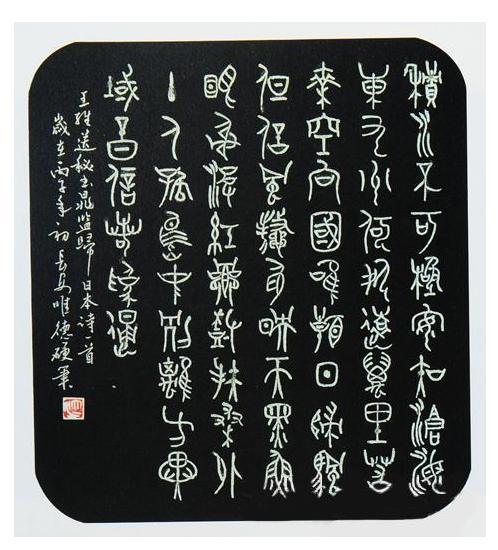 積水不可極安知滄海
東九州何処遠萬里若
乘空向國唯看日歸帆
但信風鰲身映天黑魚
眼射波紅鄉樹扶桑外
主人孤島中別離方異
域音信若為通
王維送秘書晁監歸日本诗一首
歲在丙子年初長安唯德硬筆